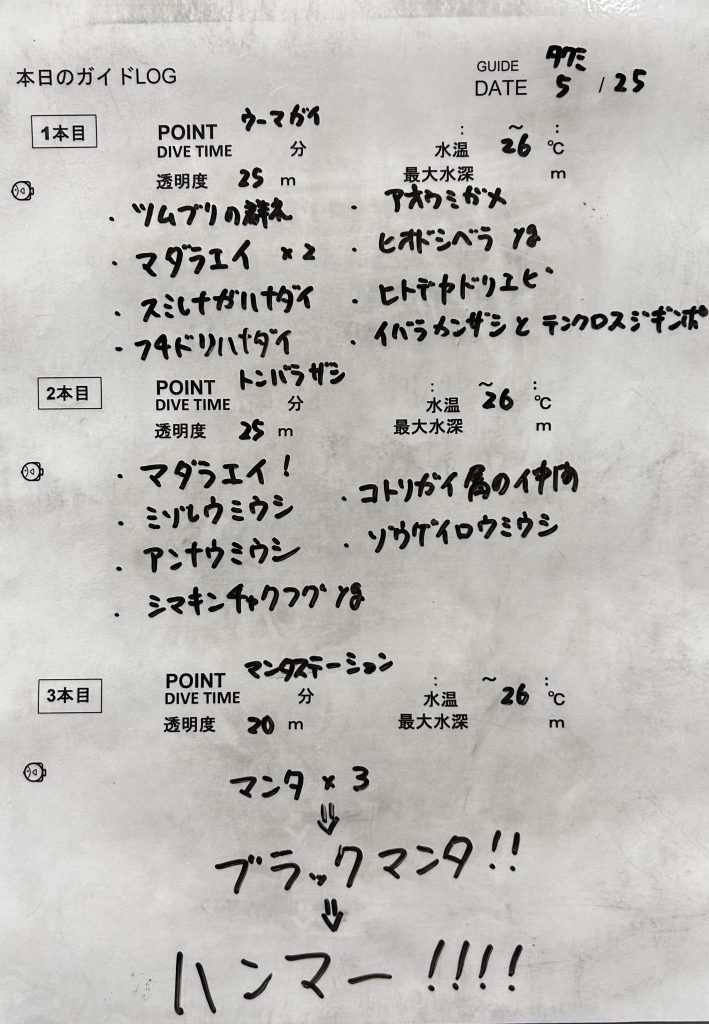 本日のガイドLOG
GUIDE タクミ
DATE 5 / 25
1本目
POINT ウーマガイ
DIVE TIME 分
: ～ :
水温 26 ℃
透明度 25 m
最大水深 m
・ツムブリの群れ
・マダラエイ ×2
・スミレナガハナダイ
・フチドリハナダイ
・アオウミガメ
・ヒオドシベラ yg
・ヒトデヤドリエビ
・イバラカンザシと テンクロスジギンポ
2本目
POINT トンバラザシ
DIVE TIME 分
: ～ :
水温 26 ℃
透明度 25 m
最大水深 m
・マダラエイ！
・ミゾレウミウシ
・アンナウミウシ
・シマキンチャクフグ yg
・コトリガイ属の仲間
・ゾウゲイロウミウシ
3本目
POINT マンタステーション
DIVE TIME 分
: ～ :
水温 26 ℃
透明度 20 m
最大水深 m
マンタ × 3
⇓
ブラックマンタ!!
⇓
ハンマー!!!!